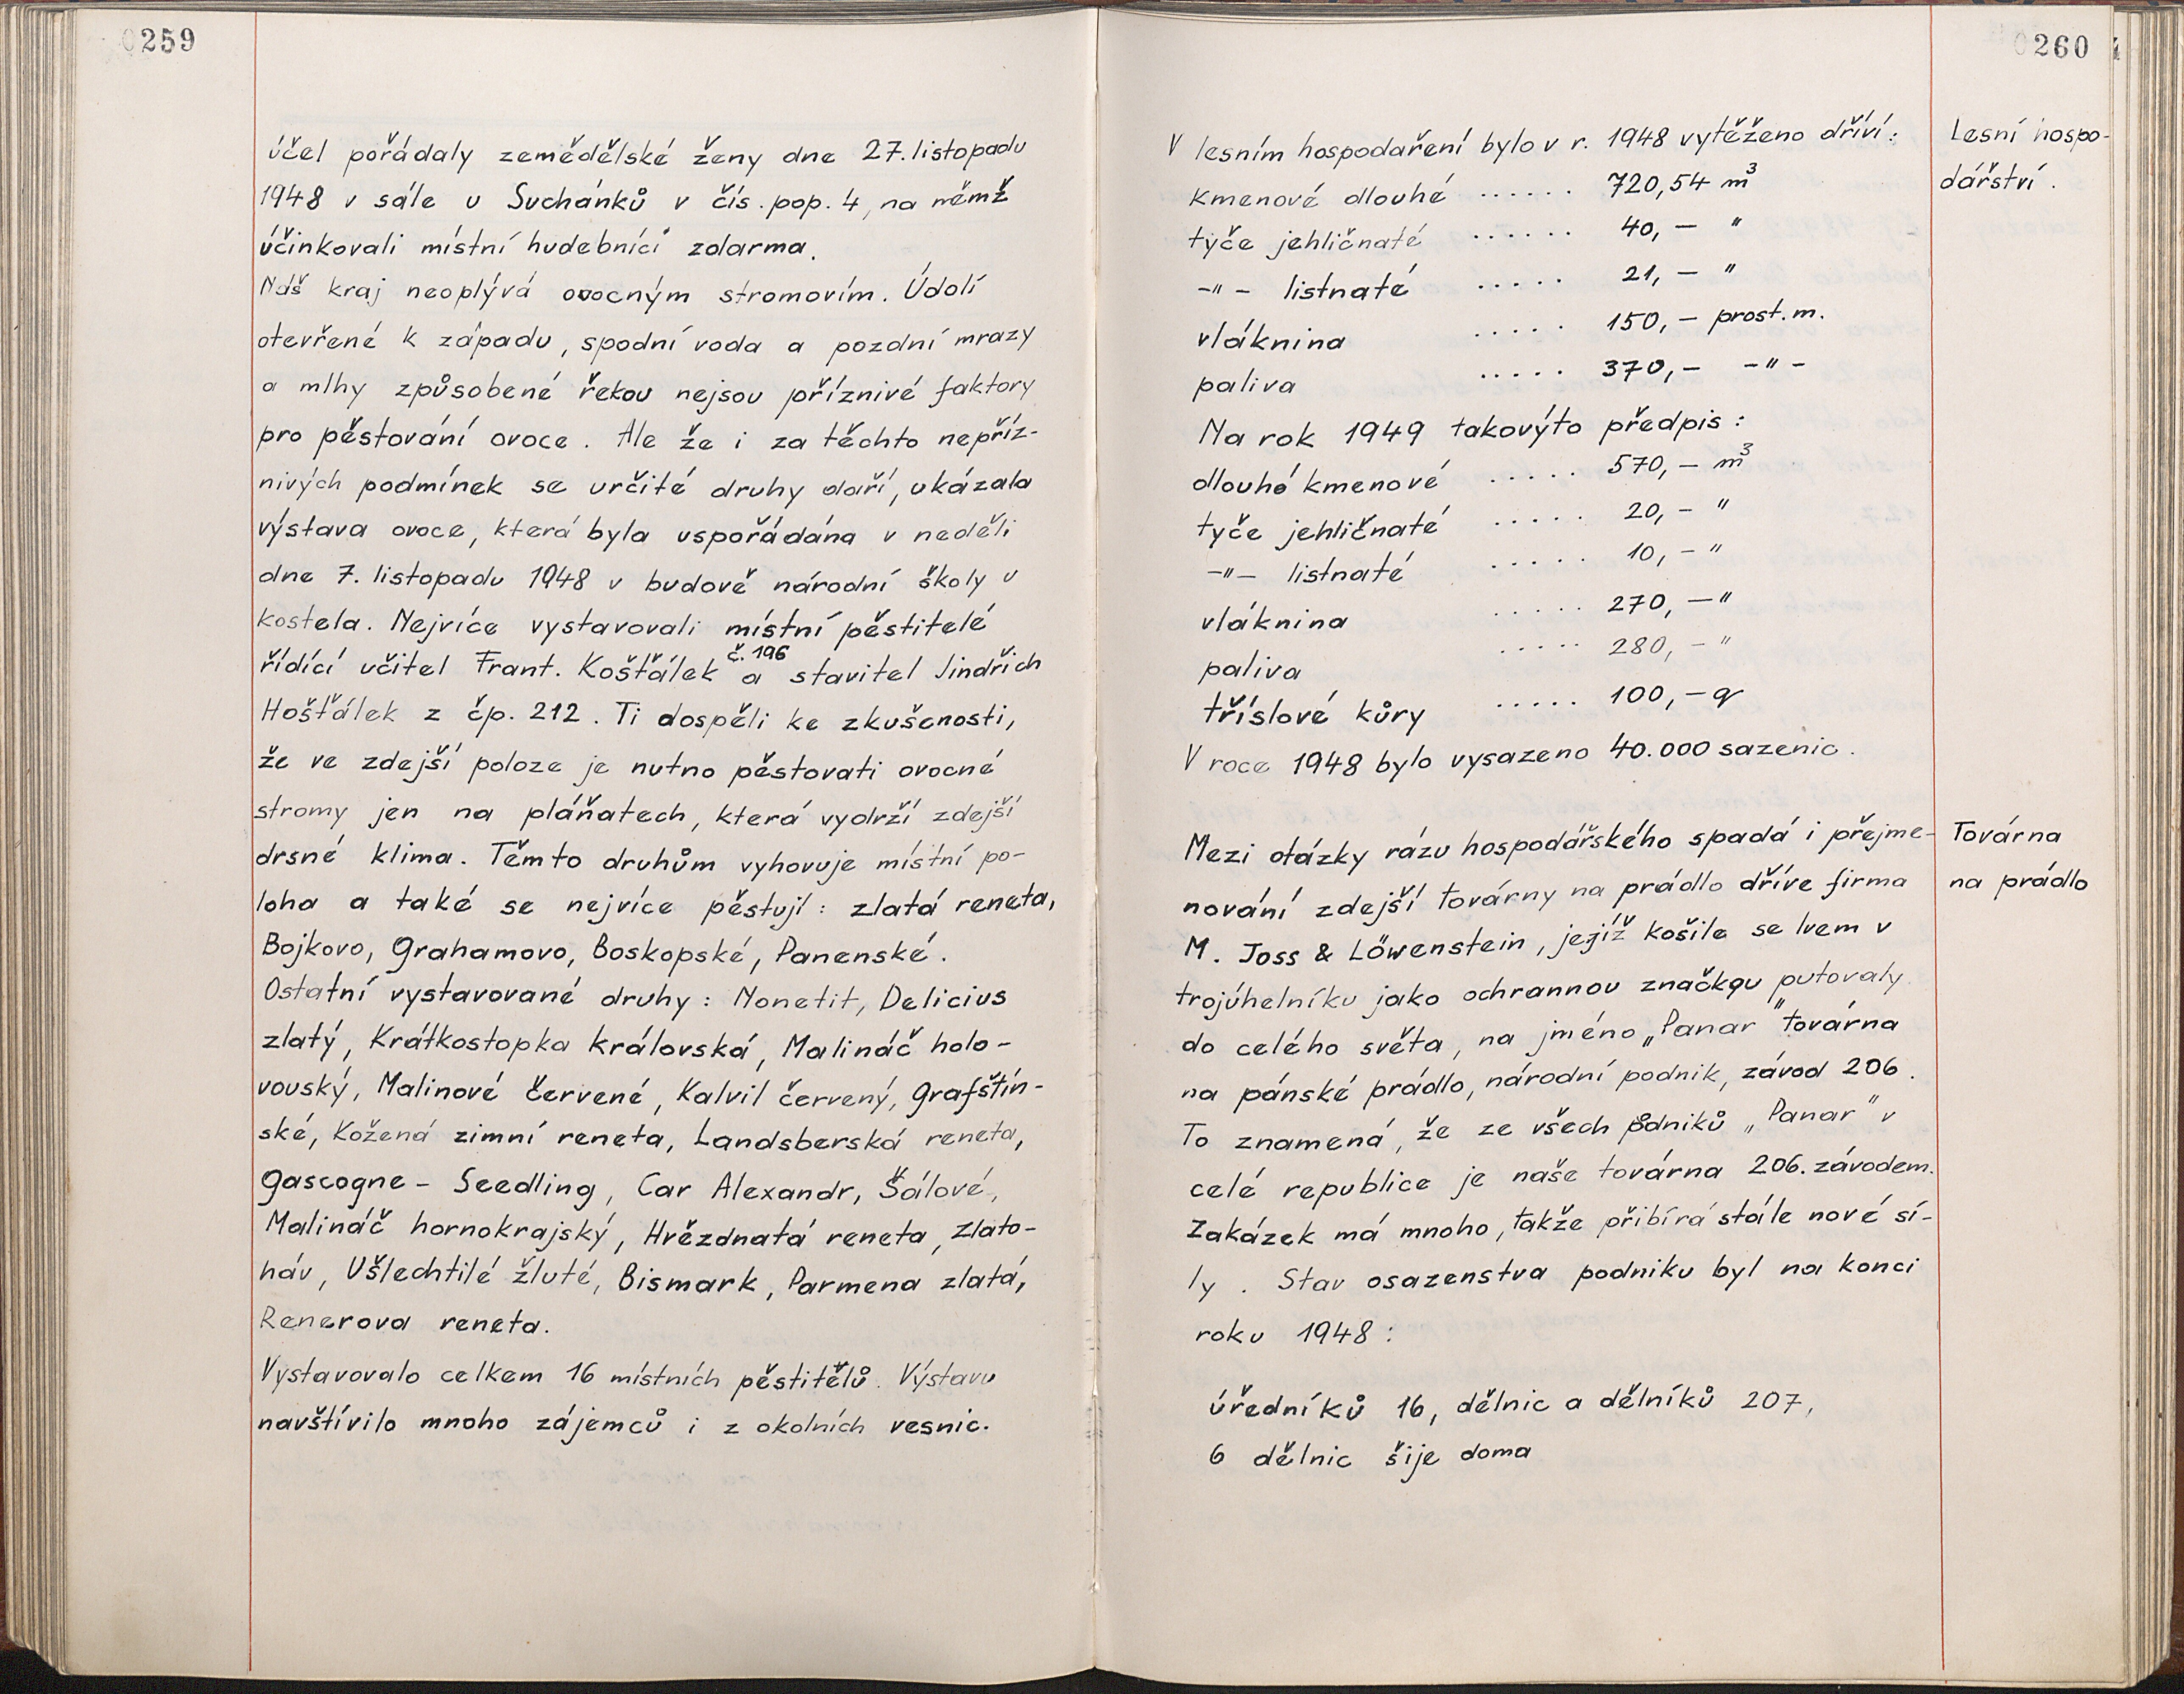 0259
účel pořádaly zemědělské ženy dne 27. listopadu
1948 v sále u Suchánků v čís. pop. 4, na němž
účinkovali místní hudebníci zdarma.
Náš kraj neoplývá ovocným stromovím. Údolí
otevřené k západu, spodní voda a pozdní mrazy
a mlhy způsobené řekou nejsou příznivé faktory
pro pěstování ovoce. Ale že i za těchto nepříz-
nivých podmínek se určité druhy daří, ukázala
výstava ovoce, která byla uspořádána v neděli
dne 7. listopadu 1948 v budově národní školy u
kostela. Nejvíce vystavovali místní pěstitelé
řídící učitel Frant. Košťálek č. 196 a stavitel Jindřich
Hošťálek z čp. 212. Ti dospěli ke zkušenosti,
že ve zdejší poloze je nutno pěstovati ovocné
stromy jen na pláňatech, která vydrží zdejší
drsné klima. Těmto druhům vyhovuje místní po-
loha a také se nejvíce pěstují: zlatá reneta,
Bojkovo, Grahamovo, Boskopské, Panenské.
Ostatní vystavované druhy: Nonetit, Delicius
zlatý, Krátkostopka královská, Malináč holo-
vouský, Malinové červené, Kalvil červený, Grafštín-
ské, Kožená zimní reneta, Landsberská reneta,
Gascogne - Seedling, Car Alexandr, Šálové,
Malináč hornokrajský, Hvězdnatá reneta, Zlato-
háv, Ušlechtilé žluté, Bismark, Parmena zlatá,
Renerova reneta.
Vystavovalo celkem 16 místních pěstitělů. Výstavu
navštívilo mnoho zájemců i z okolních vesnic.
0260
Lesní hospo-
dářství.
V lesním hospodaření bylo v r. 1948 vytěženo dříví:
kmenové dlouhé ...... 720,54 m³
tyče jehličnaté ...... 40,— "
-"- listnaté ..... 21,— "
vláknina ..... 150,— prost. m.
paliva ..... 370,— -"-
Na rok 1949 takovýto předpis:
dlouhé kmenové ..... 570,— m³
tyče jehličnaté ..... 20,— "
-"- listnaté ..... 10,— "
vláknina ..... 270,— "
paliva ..... 280,— "
tříslové kůry ..... 100,— q
V roce 1948 bylo vysazeno 40.000 sazenic.
Továrna
na prádlo
Mezi otázky rázu hospodářského spadá i přejme-
nování zdejší továrny na prádlo dříve firma
M. Joss & Löwenstein, jejíž košile se lvem v
trojúhelníku jako ochrannou značkou putovaly
do celého světa, na jméno „Panar" továrna
na pánské prádlo, národní podnik, závod 206.
To znamená, že ze všech podniků „Panar" v
celé republice je naše továrna 206. závodem.
Zakázek má mnoho, takže přibírá stále nové sí-
ly. Stav osazenstva podniku byl na konci
roku 1948:
úředníků 16, dělnic a dělníků 207,
6 dělnic šije doma